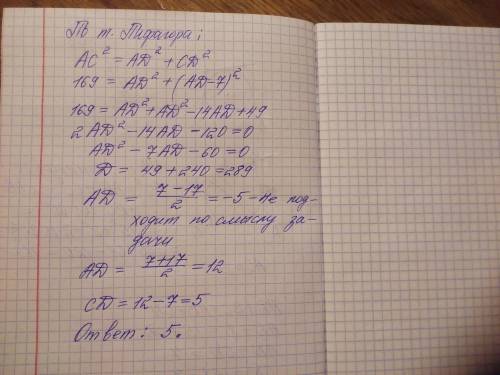 По т. Пифагора:
AC² = AD² + CD²
169 = AD² + (AD-7)²
169 = AD² + AD² - 14AD + 49
2AD² - 14AD - 120 = 0
AD² - 7AD - 60 = 0
D = 49 + 240 = 289
AD = (7-17)/2 = -5 - не под-
ходит по смыслу за-
дачи
AD = (7+17)/2 = 12
CD = 12 - 7 = 5
Ответ: 5.